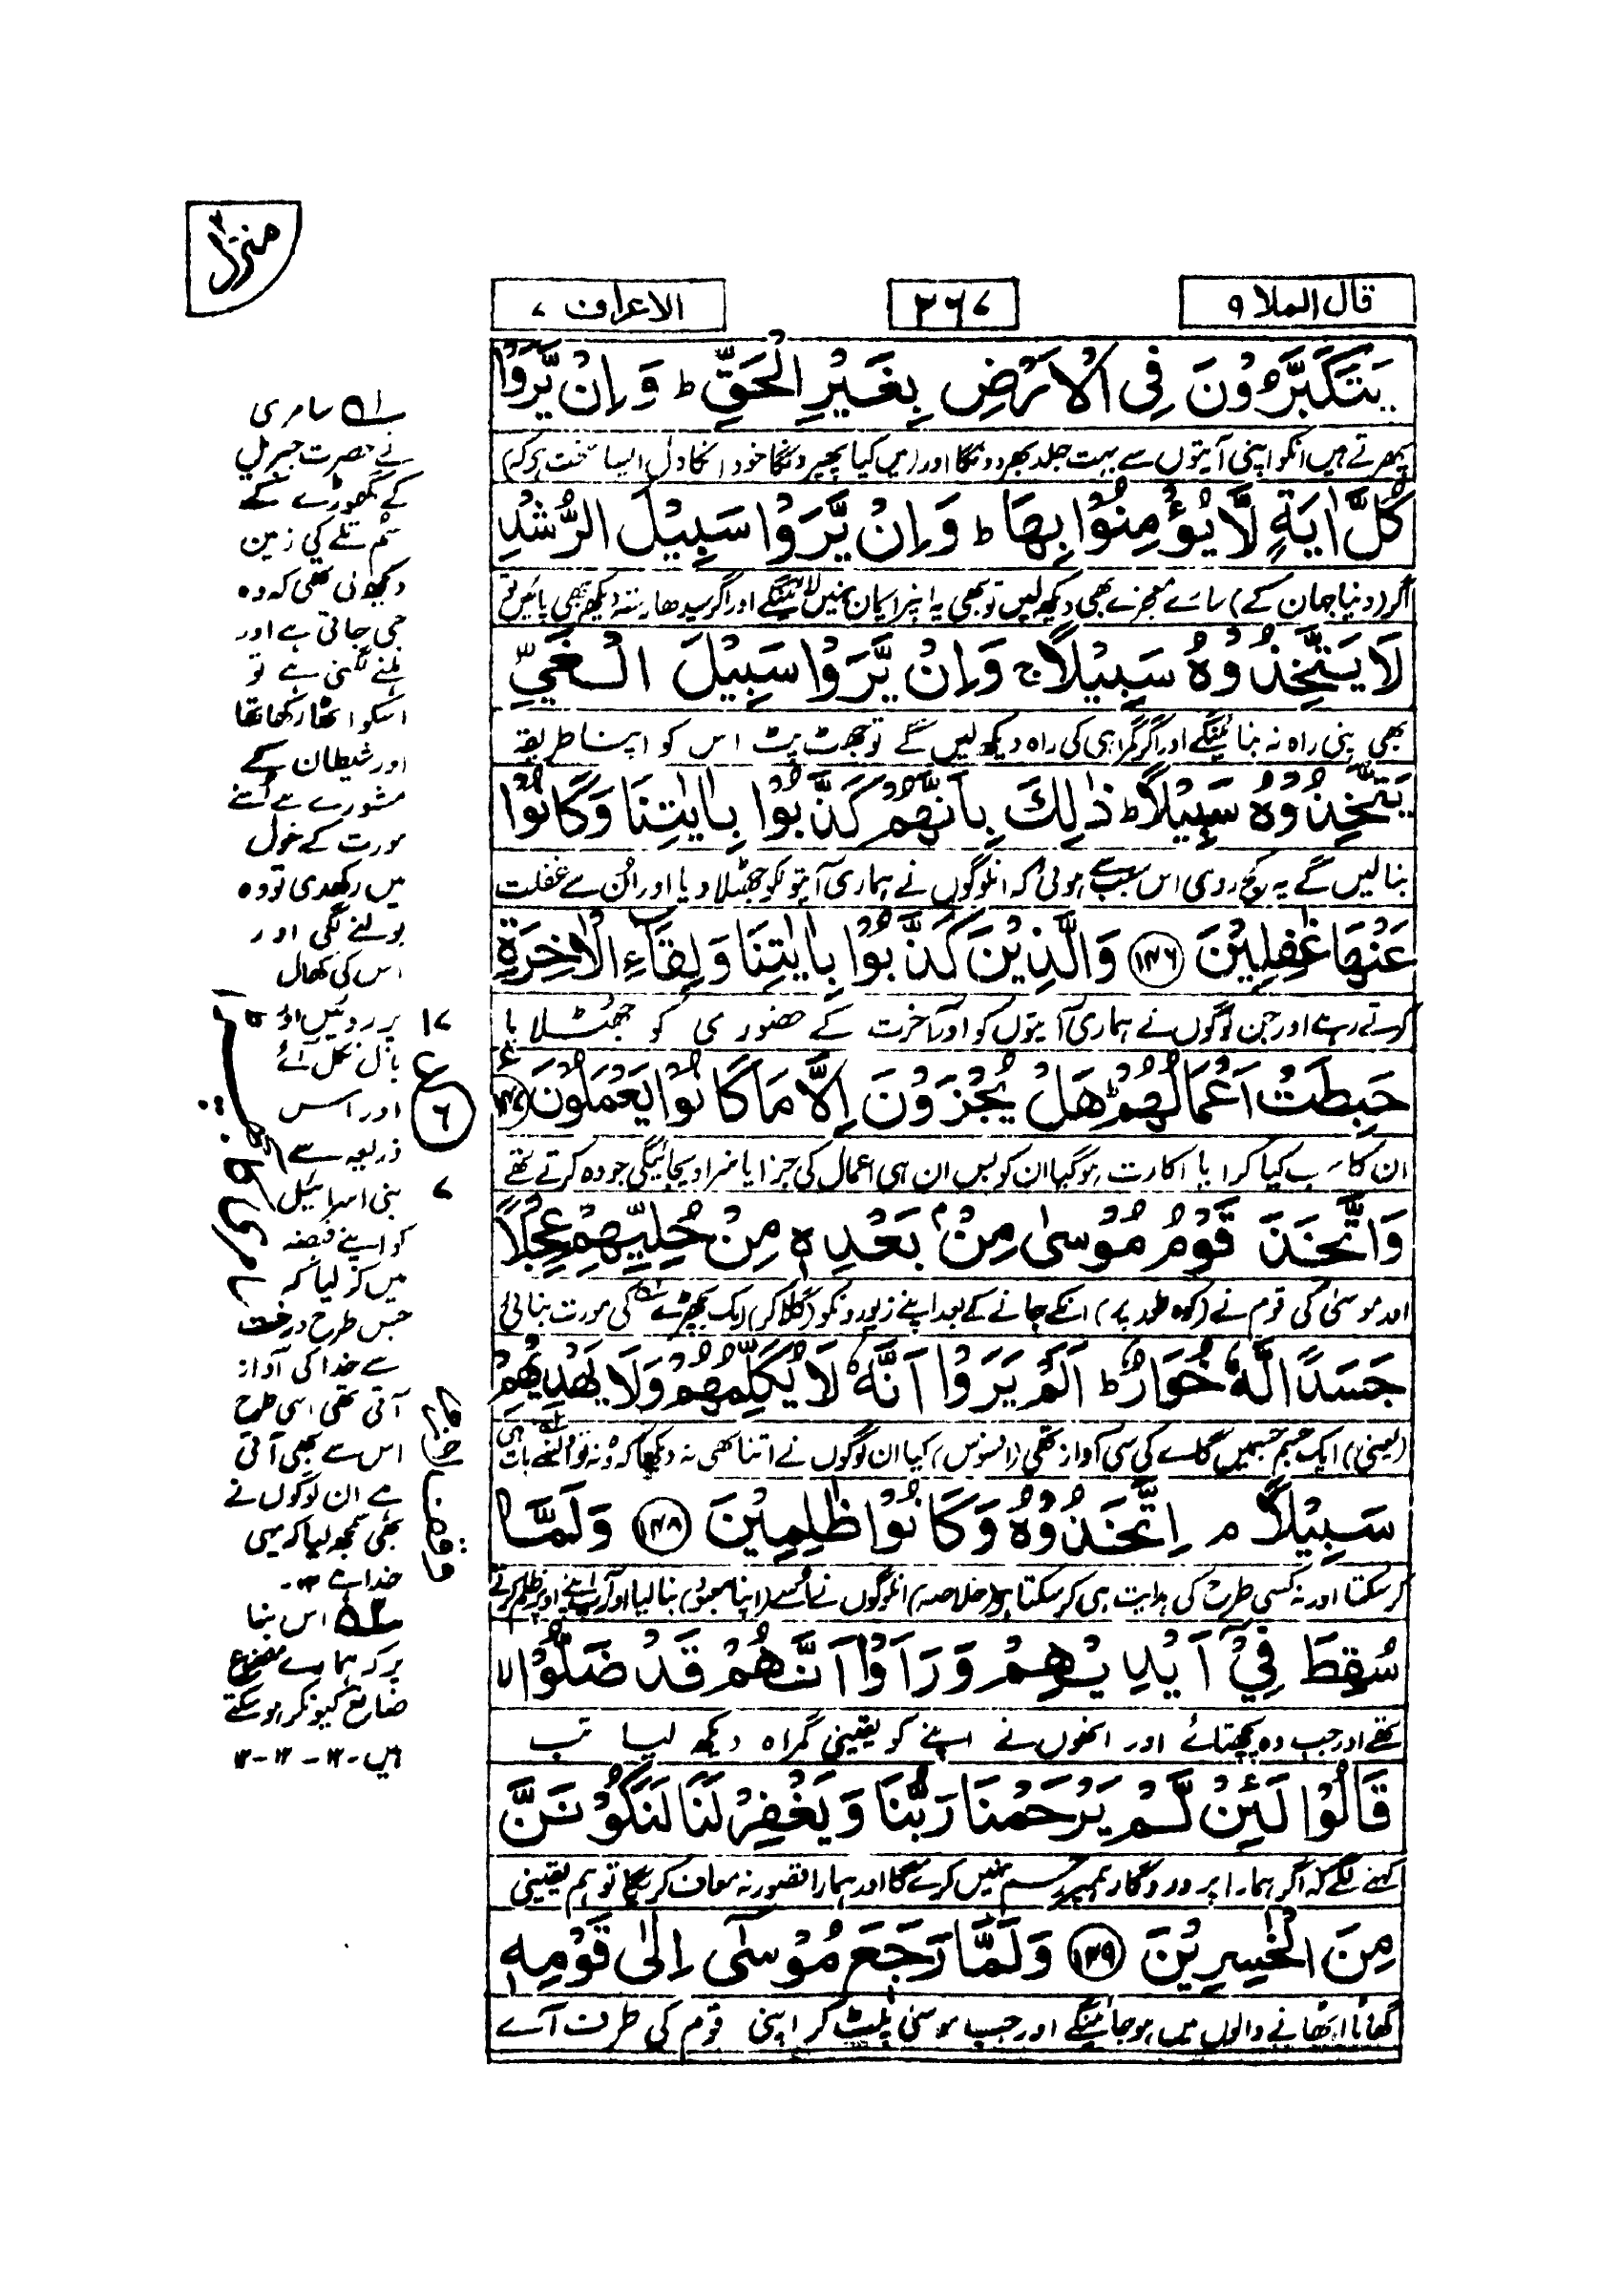 منزل۲
قال الملا ۹
۲۶۷
الاعراف ۷
يَتَكَبَّرُوْنَ فِی الْاَرْضِ بِغَيْرِ الْحَقِّ ؕ وَاِنْ يَّرَوْا
پھرتے ہیں انکو اپنی آیتوں سے بہت جلد پھیر دونگا اور (میں کیا پھیر دونگا خود انکا دل ایسا سخت ہے کہ)
كُلَّ اٰيَةٍ لَّا يُؤْمِنُوْا بِهَا ؕ وَاِنْ يَّرَوْا سَبِيْلَ الرُّشْدِ
اگر (دنیا جہان کے) سارے معجزے بھی دیکھ لیں تو بھی یہ اُنپر ایمان نہیں لائینگے اور اگر سیدھا رستہ دیکھ بھی پائیں تو
لَا يَتَّخِذُوْهُ سَبِيْلًا ۚ وَاِنْ يَّرَوْا سَبِيْلَ الْغَيِّ
بھی اپنی راہ نہ بنائینگے اور اگر گمراہی کی راہ دیکھ لیں گے تو جھٹ پٹ اس کو اپنا طریقہ
يَتَّخِذُوْهُ سَبِيْلًا ؕ ذٰلِكَ بِاَنَّهُمْ كَذَّبُوْا بِاٰيٰتِنَا وَكَانُوْا
بنا لیں گے یہ کج روی اس سبب سے ہوئی کہ ان لوگوں نے ہماری آیتوں کو جھٹلا دیا اور اُن سے غفلت
عَنْهَا غٰفِلِيْنَ ۱۴۶ وَالَّذِيْنَ كَذَّبُوْا بِاٰيٰتِنَا وَلِقَآءِ الْاٰخِرَةِ
کرتے رہے اور جن لوگوں نے ہماری آیتوں کو اور آخرت کے حضوری کو جھٹلایا
حَبِطَتْ اَعْمَالُهُمْ ؕ هَلْ يُجْزَوْنَ اِلَّا مَا كَانُوْا يَعْمَلُوْنَ ۱۴۷ ع
ان کا سب کیا کرایا اکارت ہو گیا ان کو بس ان ہی اعمال کی جزا یا سزا دیجائیگی جو وہ کرتے تھے
وَاتَّخَذَ قَوْمُ مُوْسٰى مِنْۢ بَعْدِهٖ مِنْ حُلِيِّهِمْ عِجْلًا
اور موسیٰ کی قوم نے (کوہ طور پر) انکے جانے کے بعد اپنے زیورونکو (گلا کر) ایک بچھڑے کی مورت بنا لی
جَسَدًا لَّهٗ خُوَارٌ ؕ اَلَمْ يَرَوْا اَنَّهٗ لَا يُكَلِّمُهُمْ وَلَا يَهْدِيْهِمْ
(یعنی) ایک جسم جسمیں گائے کی سی آواز تھی (افسوس) کیا ان لوگوں نے اتنا بھی نہ دیکھا کہ وہ نہ تو اُنسے بات ہی
سَبِيْلًا ۘ اِتَّخَذُوْهُ وَكَانُوْا ظٰلِمِيْنَ ۱۴۸ وَلَمَّا
کر سکتا اور نہ کسی طرح کی ہدایت ہی کر سکتا ہے (خلاصہ) ان لوگوں نے اُسے (اپنا معبود) بنا لیا اور آپ اپنے اوپر ظلم کرتے
سُقِطَ فِيْۤ اَيْدِيْهِمْ وَرَاَوْا اَنَّهُمْ قَدْ ضَلُّوْا ۙ
تھے اور جب وہ پچھتائے اور انھوں نے اپنے کو یقینی گمراہ دیکھ لیا تب
قَالُوْا لَئِنْ لَّمْ يَرْحَمْنَا رَبُّنَا وَيَغْفِرْ لَنَا لَنَكُوْنَنَّ
کہنے لگے کہ اگر ہمارا پروردگار ہمپر رحم نہیں کرے گا اور ہمارا قصور نہ معاف کریگا تو ہم یقینی
مِنَ الْخٰسِرِيْنَ ۱۴۹ وَلَمَّا رَجَعَ مُوْسٰٓى اِلٰى قَوْمِهٖ
گھاٹا اٹھانے والوں میں ہو جائینگے اور جب موسیٰ پلٹ کر اپنی قوم کی طرف آئے
۱؎ سامری
نے حضرت جبریل
کے گھوڑے کے
سُم تلے کی زمین
دیکھ لی تھی کہ وہ
جمی جاتی ہے اور
ہلنے لگتی ہے تو
اسکو اٹھا رکھا تھا
اور شیطان کے
مشورے سے اُسنے
مورت کے خول
میں رکھدی تو وہ
بولنے لگی اور
اس کی کھال
پر روئیں اور
بال نکل آئے
اور اس
ذریعہ سے
بنی اسرائیل
کو اپنے قبضہ
میں کر لیا کہ
جس طرح درخت
سے خدا کی آواز
آتی تھی اسی طرح
اس سے بھی آتی
ہے ان لوگوں نے
بھی سمجھ لیا کہ یہی
خدا ہے ۱۲-
۲؎ اس بنا
پر کہ ہمارے مصنوع
ضایع کیونکر ہو سکتے
ہیں-۱۲-۱۲-۱۲
۱۷
ع
۶
۷